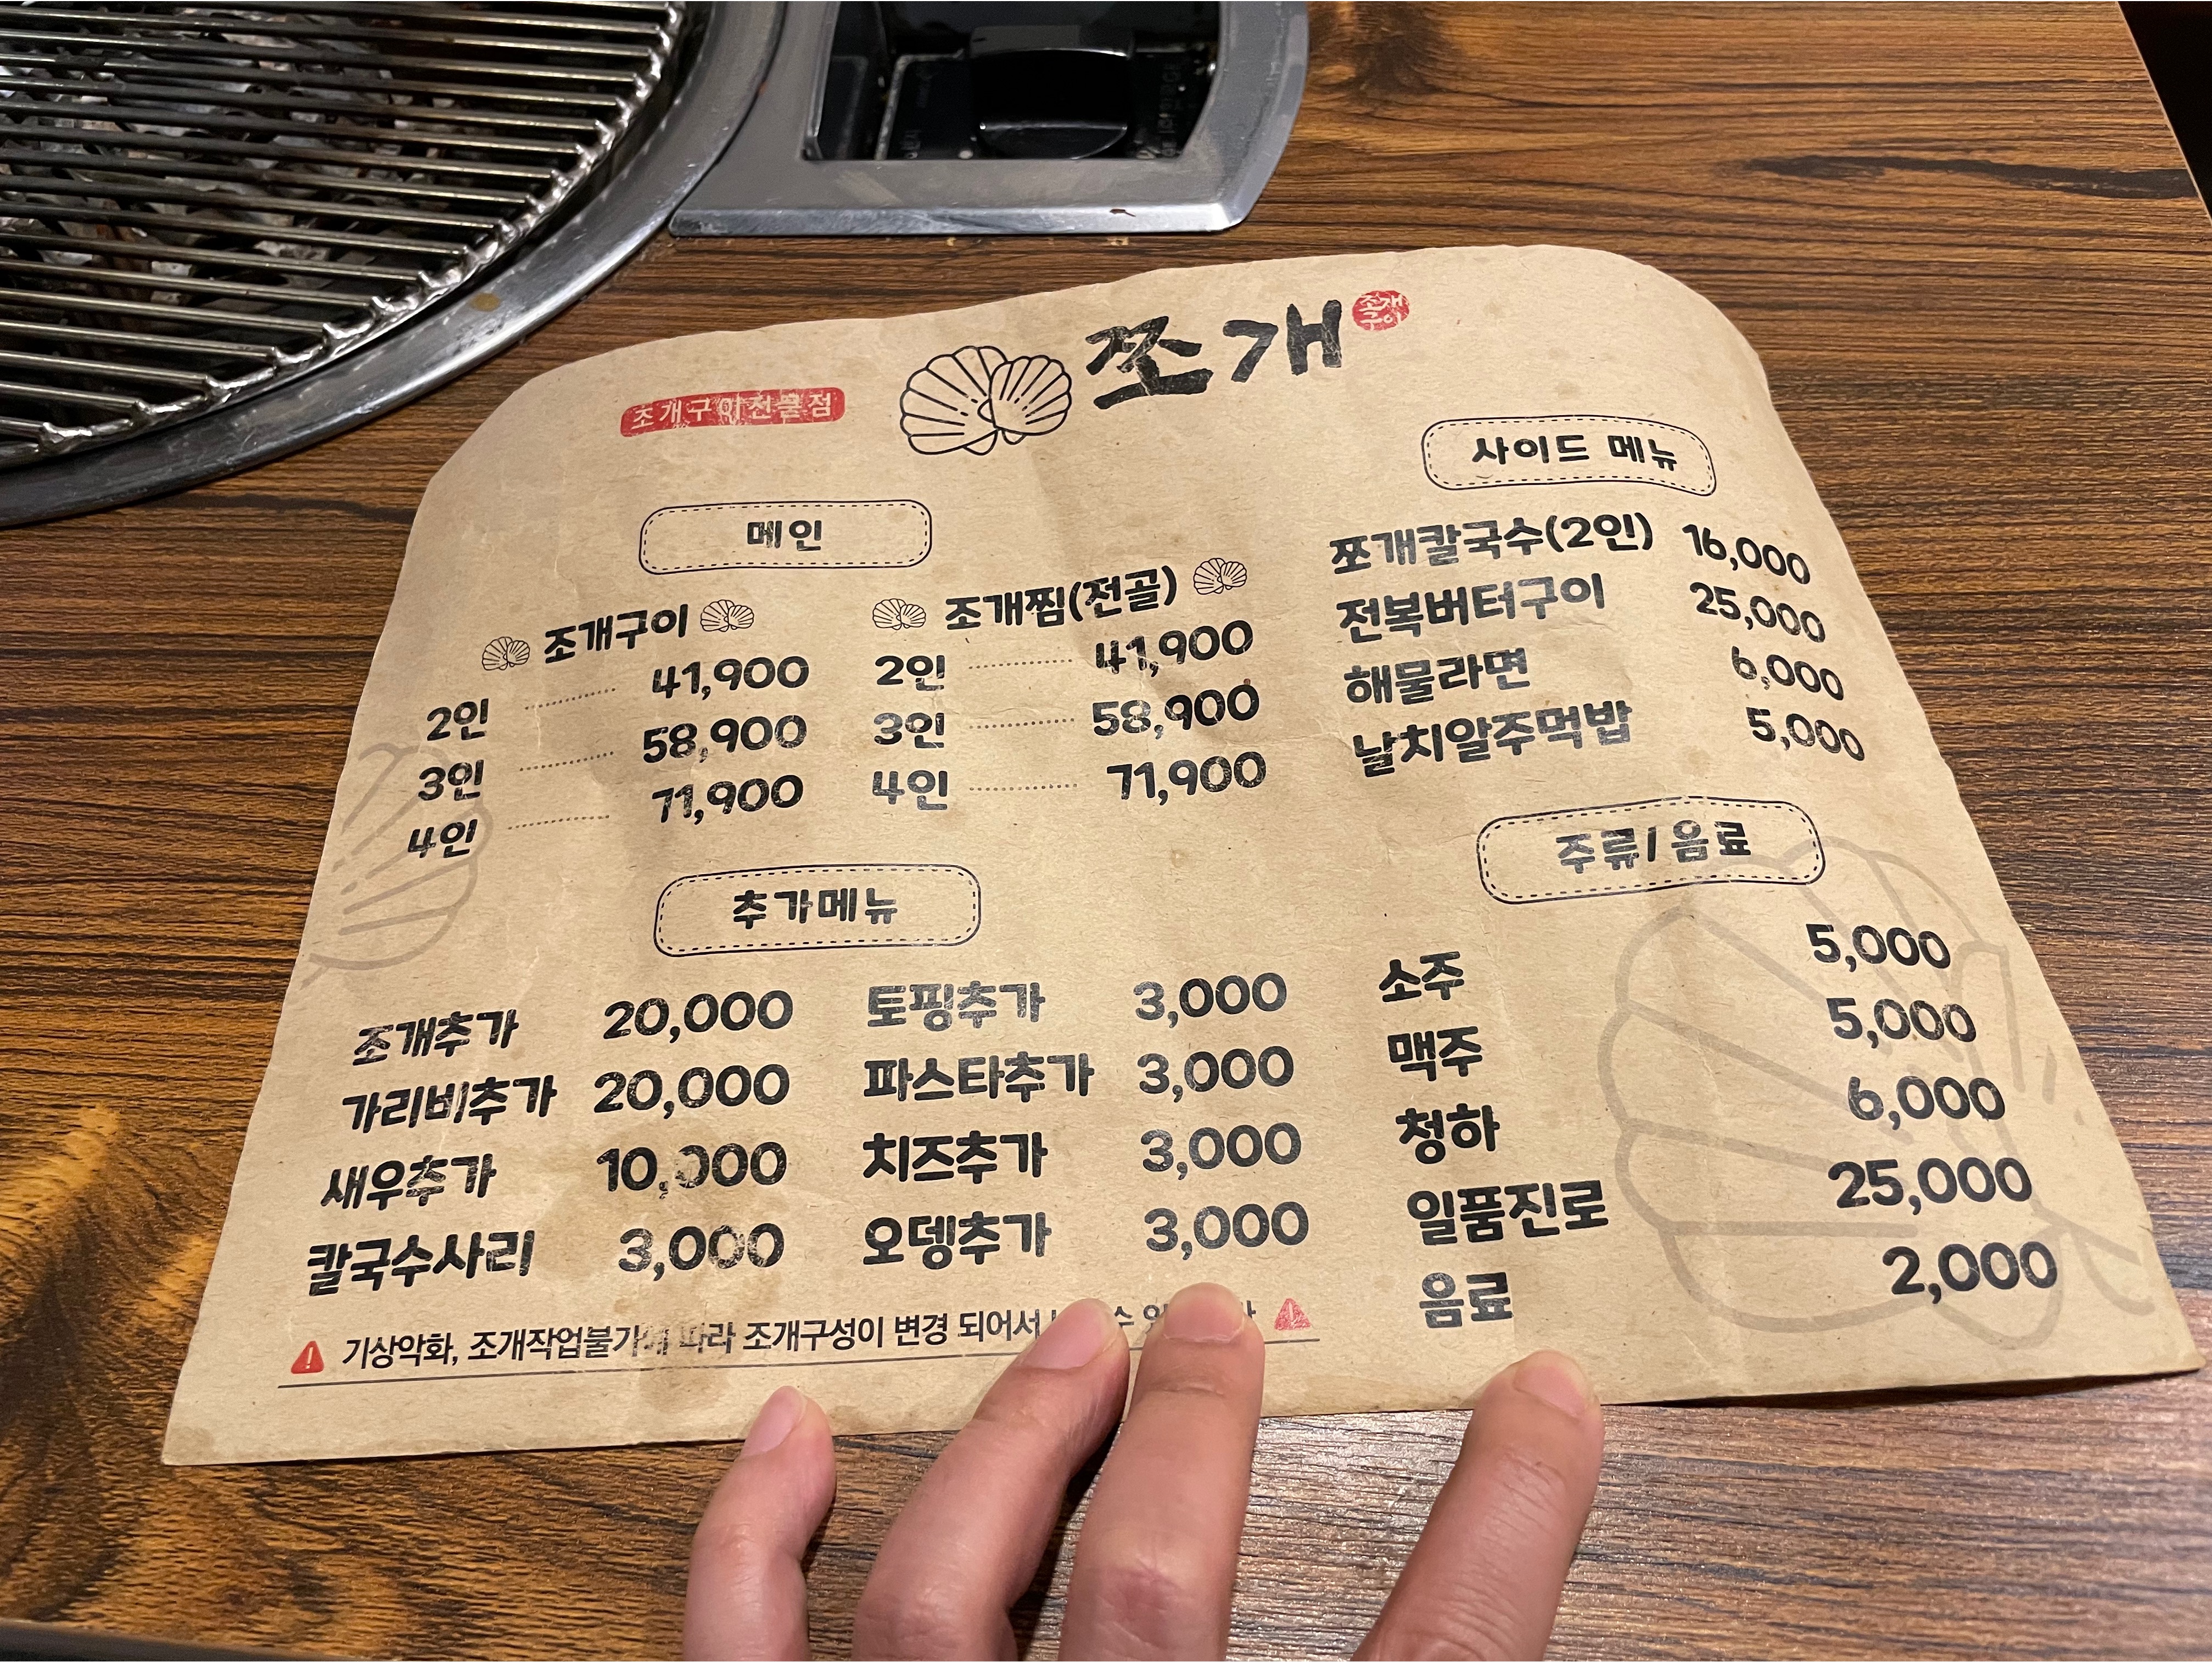 쪼개
조개구이
조개구이전문점
메인
조개구이
2인 41,900
3인 58,900
4인 71,900
조개찜(전골)
2인 41,900
3인 58,900
4인 71,900
추가메뉴
조개추가 20,000
가리비추가 20,000
새우추가 10,000
칼국수사리 3,000
토핑추가 3,000
파스타추가 3,000
치즈추가 3,000
오뎅추가 3,000
기상악화, 조개작업불가에 따라 조개구성이 변경 되어서 수
사이드 메뉴
쪼개칼국수(2인) 16,000
전복버터구이 25,000
해물라면 6,000
날치알주먹밥 5,000
주류/음료
소주 5,000
맥주 5,000
청하 6,000
일품진로 25,000
음료 2,000